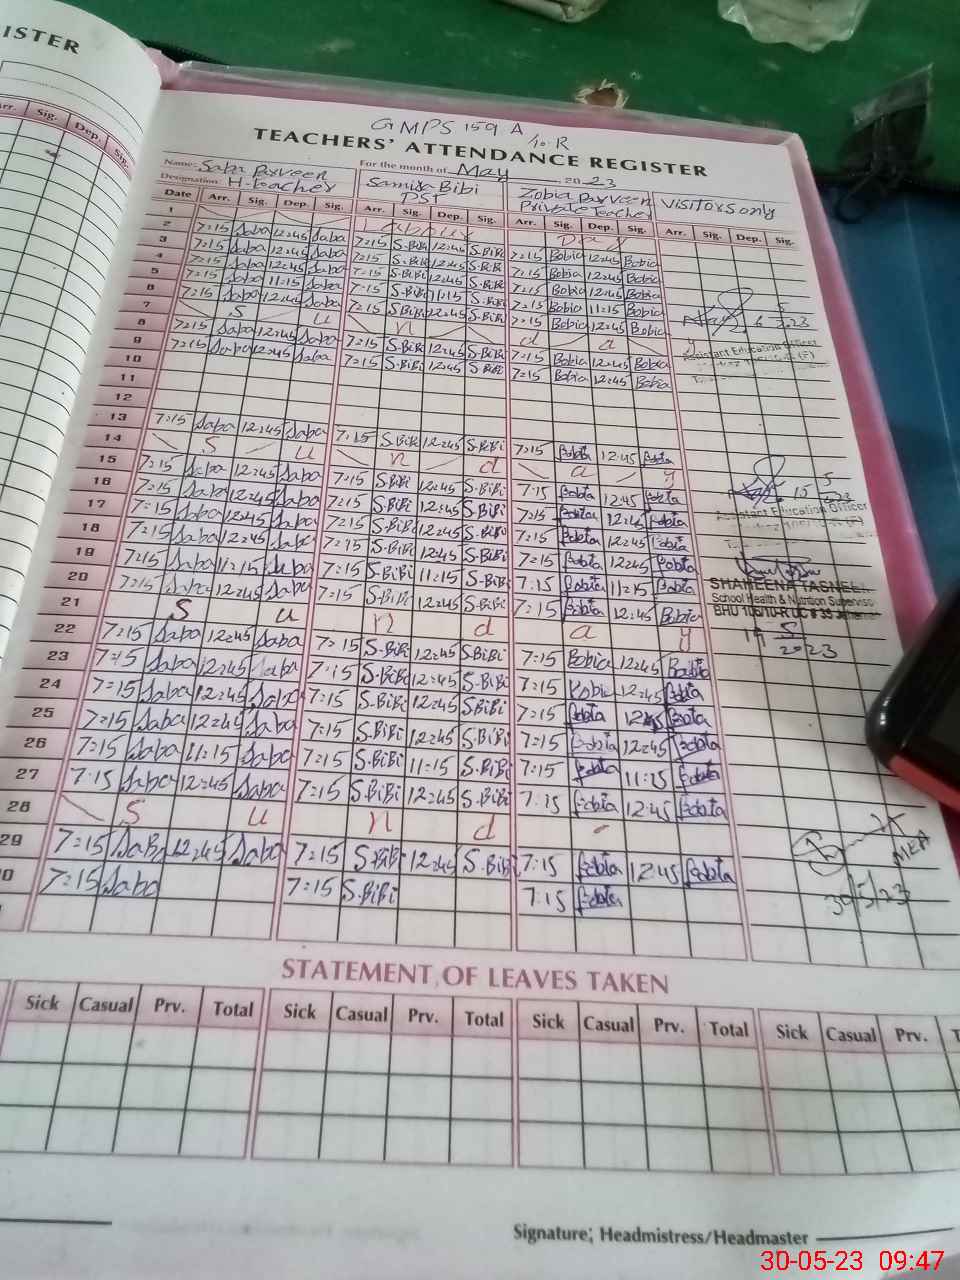 ISTER
Arr. Sig. Dep. Sig.
GMPS 159 A
/10-R
TEACHERS' ATTENDANCE REGISTER
Name: Saba Parveen For the month of May 2023
Designation: H-teacher Samira Bibi PST Zobia Parveen Private Teacher Visitors only
Date Arr. Sig. Dep. Sig. Arr. Sig. Dep. Sig. Arr. Sig. Dep. Sig. Arr. Sig. Dep. Sig.
1 Day
2 7:15 Saba 12:45 Saba 7:15 S.BiBi 12:45 S.BiBi 7:15 Bobia 12:45 Bobia
3 7:15 Saba 12:45 Saba 7:15 S.BiBi 12:45 S.BiBi 7:15 Bobia 12:45 Bobia
4 7:15 Saba 12:45 Saba 7:15 S.BiBi 12:45 S.BiBi 7:15 Bobia 12:45 Bobia
5 7:15 Saba 11:15 Saba 7:15 S.BiBi 11:15 S.BiBi 7:15 Bobia 11:15 Bobia
6 7:15 Saba 12:45 Saba 7:15 S.BiBi 12:45 S.BiBi 7:15 Bobia 12:45 Bobia
7 S u n d a y
8 7:15 Saba 12:45 Saba 7:15 S.BiBi 12:45 S.BiBi 7:15 Bobia 12:45 Bobia
Assistant Education Officer
9 7:15 Saba 12:45 Saba 7:15 S.BiBi 12:45 S.BiBi 7:15 Bobia 12:45 Bobia
10
11
12
13 7:15 Saba 12:45 Saba 7:15 S.BiBi 12:45 S.BiBi 7:15 Bobia 12:45 Bobia
14 S u n d a y
15 7:15 Saba 12:45 Saba 7:15 S.BiBi 12:45 S.BiBi 7:15 Bobia 12:45 Bobia 15 5
16 7:15 Saba 12:45 Saba 7:15 S.BiBi 12:45 S.BiBi 7:15 Bobia 12:45 Bobia
Assistant Education Officer
17 7:15 Saba 12:45 Saba 7:15 S.BiBi 12:45 S.BiBi 7:15 Bobia 12:45 Bobia
18 7:15 Saba 12:45 Saba 7:15 S.BiBi 12:45 S.BiBi 7:15 Bobia 12:45 Bobia
19 7:15 Saba 11:15 Saba 7:15 S.BiBi 11:15 S.BiBi 7:15 Bobia 11:15 Bobia
SHAHEENA TASNEEM
School Health & Nutrition Supervisor
BHU 106/10-R UC # 35
20 7:15 Saba 12:45 Saba 7:15 S.BiBi 12:45 S.BiBi 7:15 Bobia 12:45 Bobia
19 5 2023
21 S u n d a y
22 7:15 Saba 12:45 Saba 7:15 S.BiBi 12:45 S.BiBi 7:15 Bobia 12:45 Bobia
23 7:15 Saba 12:45 Saba 7:15 S.BiBi 12:45 S.BiBi 7:15 Bobia 12:45 Bobia
24 7:15 Saba 12:45 Saba 7:15 S.BiBi 12:45 S.BiBi 7:15 Bobia 12:45 Bobia
25 7:15 Saba 12:45 Saba 7:15 S.BiBi 12:45 S.BiBi 7:15 Bobia 12:45 Bobia
26 7:15 Saba 11:15 Saba 7:15 S.BiBi 11:15 S.BiBi 7:15 Bobia 11:15 Bobia
27 7:15 Saba 12:45 Saba 7:15 S.BiBi 12:45 S.BiBi 7:15 Bobia 12:45 Bobia
28 S u n d
29 7:15 SaBa 12:45 Saba 7:15 S.BiBi 12:45 S.BiBi 7:15 Bobia 12:45 Bobia MEA
30 7:15 Saba 7:15 S.BiBi 7:15 Bobia 30/5/23
STATEMENT OF LEAVES TAKEN
Sick Casual Prv. Total Sick Casual Prv. Total Sick Casual Prv. Total Sick Casual Prv. T
Signature; Headmistress/Headmaster
30-05-23 09:47